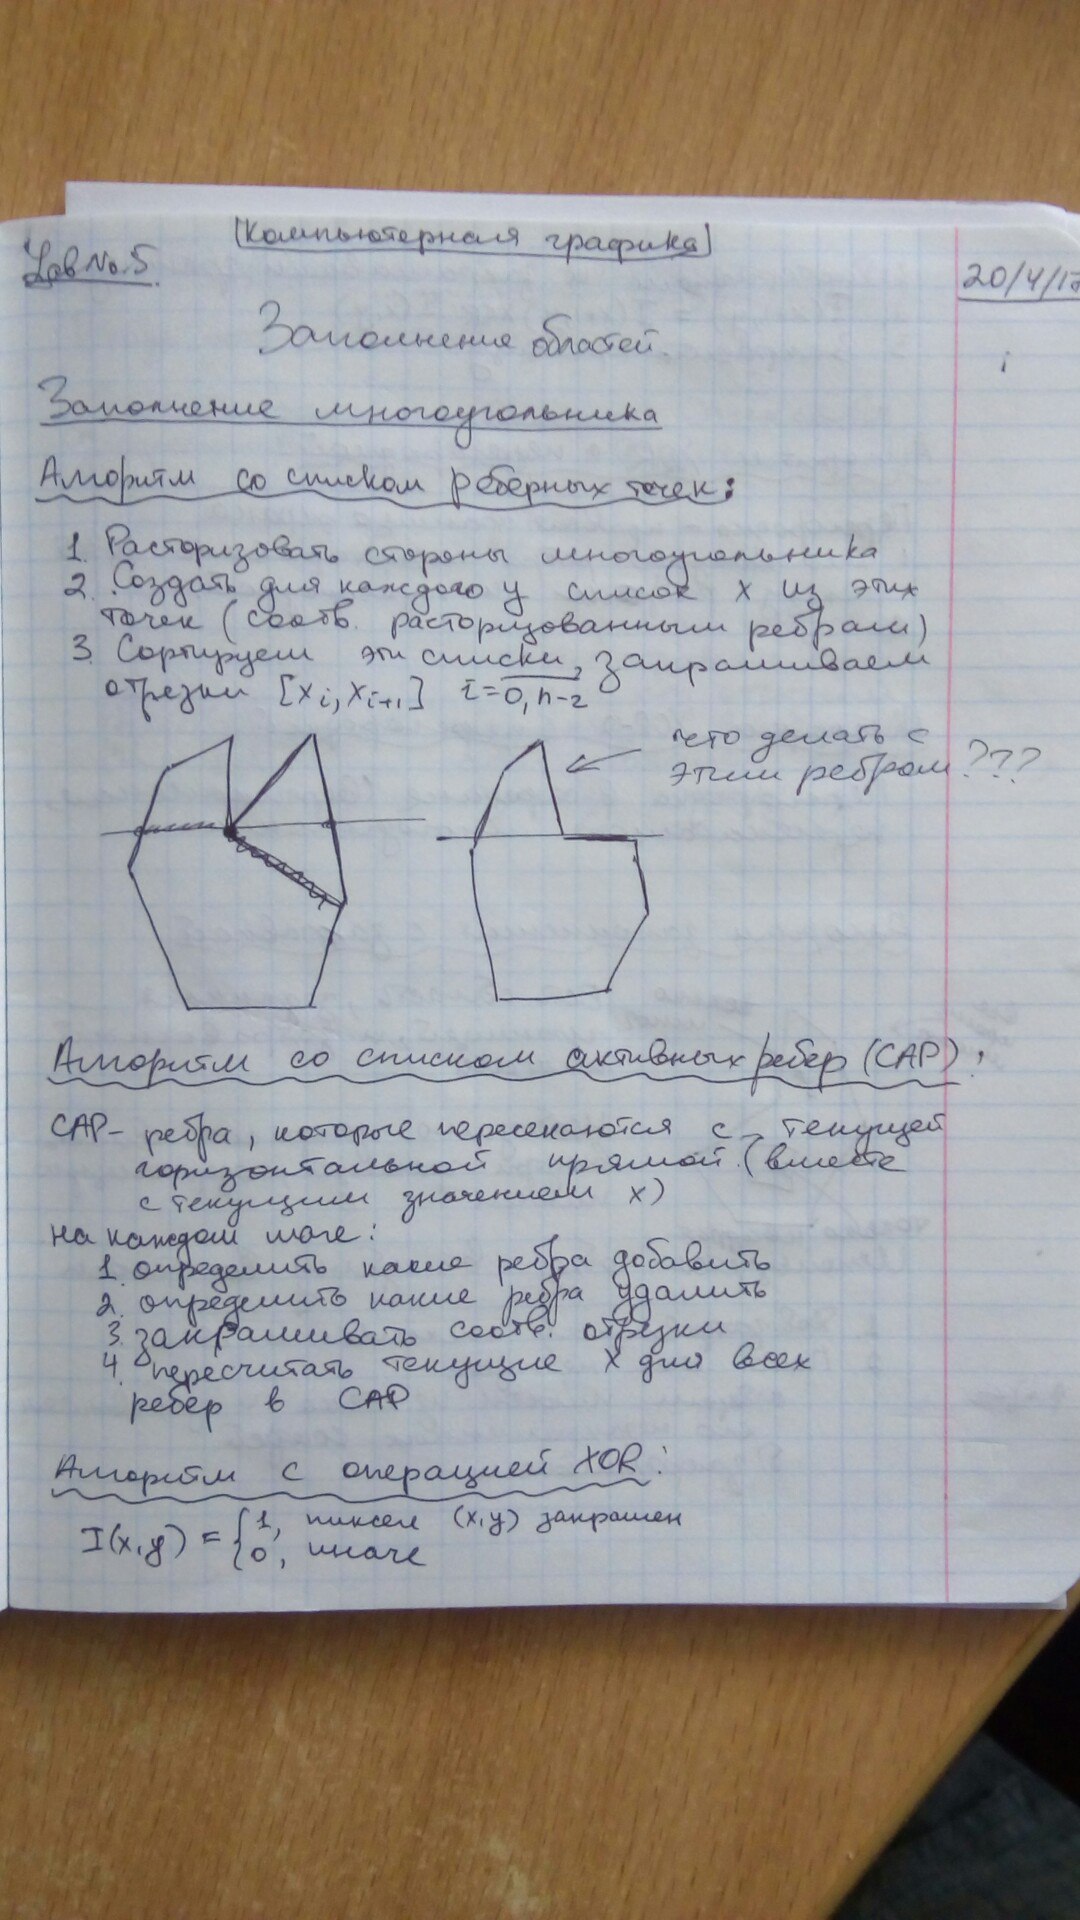 [Компьютерная графика]
Lab No.5
20/4/17
Заполнение областей.
Заполнение многоугольника
Алгоритм со списком реберных точек:
1. Расторизовать стороны многоугольника
2. Создать для каждого y список x из этих
точек (соотв. расторизованным ребрам)
3. Сортируем эти списки, закрашиваем
отрезки [x_i, x_{i+1}] i=0,n-2
что делать с
этим ребром???
Алгоритм со списком активных ребер (САР):
САР - ребра, которые пересекаются с текущей
горизонтальной прямой (вместе
с текущим значением x)
на каждом шаге:
1. определить какие ребра добавить
2. определить какие ребра удалить
3. закрашивать соотв. отрезки
4. пересчитать текущие x для всех
ребер в САР
Алгоритм с операцией XOR:
I(x,y) = { 1, пиксел (x,y) закрашен
0, иначе